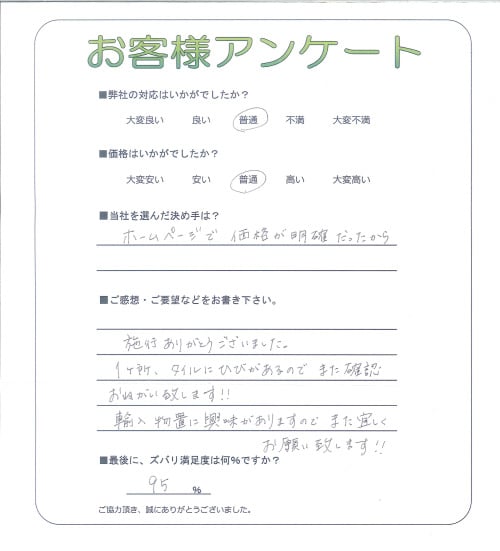 お客様アンケート
■弊社の対応はいかがでしたか？
大変良い　良い　普通　不満　大変不満
■価格はいかがでしたか？
大変安い　安い　普通　高い　大変高い
■当社を選んだ決め手は？
ホームページで 価格が明確だったから
■ご感想・ご要望などをお書き下さい。
施行ありがとうございました。
1ヶ所、タイルにひびがあるので また確認
おねがい致します!!
輸入物置に興味がありますので また宜しく
お願い致します!!
■最後に、ズバリ満足度は何%ですか？
95 %
ご協力頂き、誠にありがとうございました。